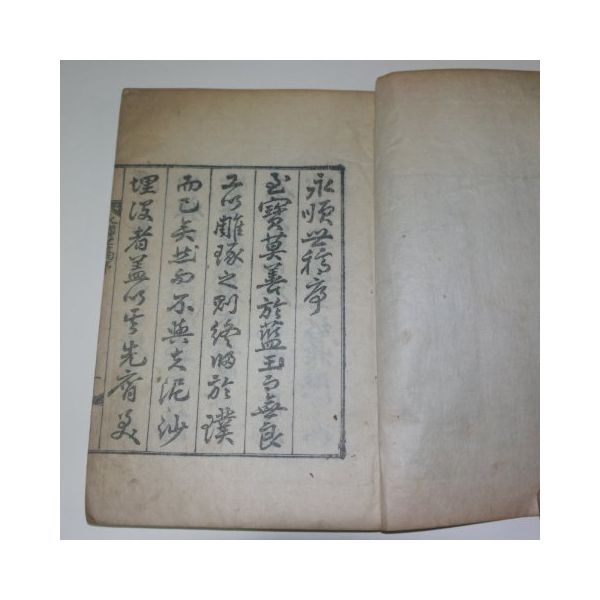 永順世稿序
至寶莫善於藍玉而無良
工以雕琢之則終歸於璞
而已矣然而不與夫泥沙
埋沒者盖以其先有美